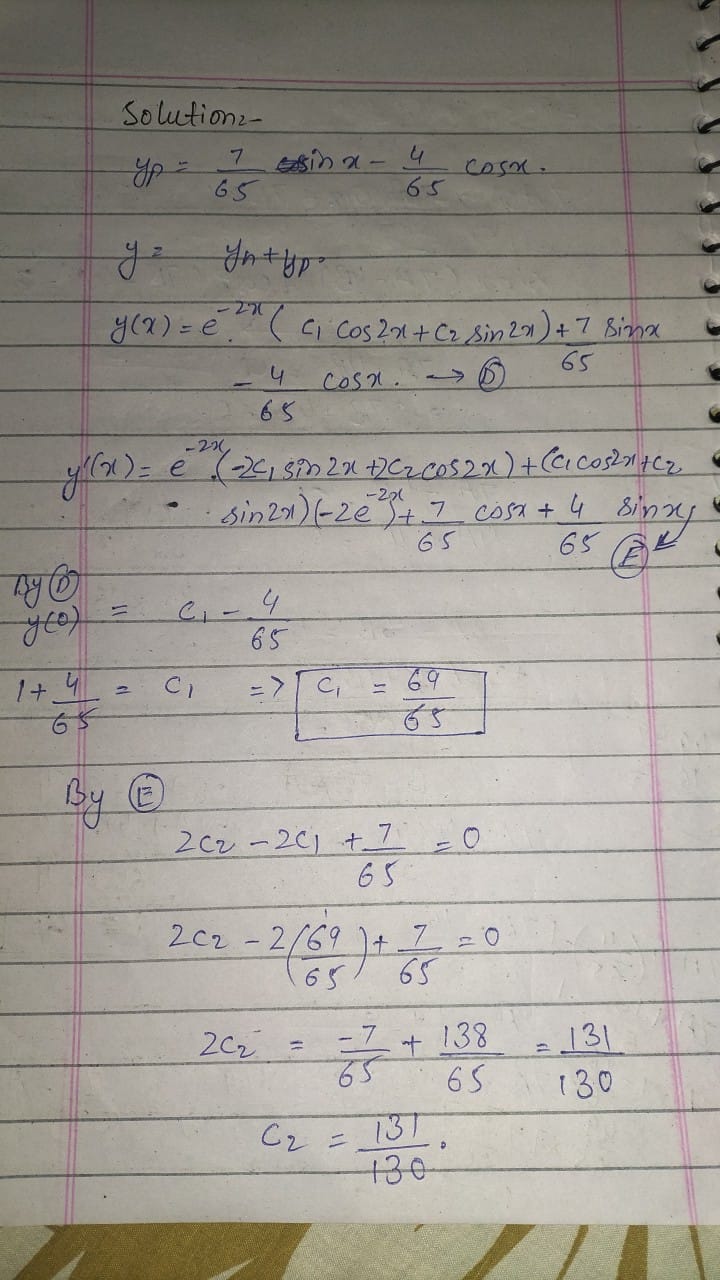 Solution:-
yp = 7/65 sin x - 4/65 cosx.
y = yn + yp.
y(x) = e^-2x ( c1 cos2x + c2 sin2x) + 7/65 sinx
- 4/65 cosx. → Ⓓ
y'(x) = e^-2x (-2c1 sin2x + 2c2 cos2x) + (c1 cos2x + c2
sin2x) (-2e^-2x) + 7/65 cosx + 4/65 sinx,
Ⓔ ↙
By Ⓓ
y(0) = c1 - 4/65
1 + 4/65 = c1 => c1 = 69/65
By Ⓔ
2c2 - 2c1 + 7/65 = 0
2c2 - 2(69/65) + 7/65 = 0
2c2 = -7/65 + 138/65 = 131/130
c2 = 131/130.